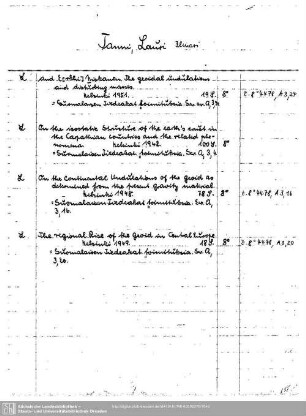 Tanni, Lauri Ilmari
L and Erkki] Kivekanen The geoidal undulations
and disturbing masses.
Helsinki 1951. 19 S. 8° Z. 8° 4478, A 3, 27
= Suomalaisen Tiedeakat. Ser. A, 3,
L On the isostatic Structure of the earth's crust in
the Carpathian countries and the related phe-
nomena Helsinki 1942. 100 S. 8°
= Suomalaisen Tiedeakat. Ser. A, 3, 4.
L On the Continental Undulations of the geoid as
determined from the present gravity material
Helsinki 1948. 78 S. 8° Z. 8° 4478, A 3, 16
= Suomalaisen Tiedeakat. Ser. A,
3, 16.
L The regional Rise of the geoid in Central Europe
Helsinki 1949. 18 S. 8° Z. 8° 4478, A 3, 20
= Suomalaisen Tiedeakat. Ser. A,
3, 20.
Sächsische Landesbibliothek –
Staats- und Universitätsbibliothek Dresden